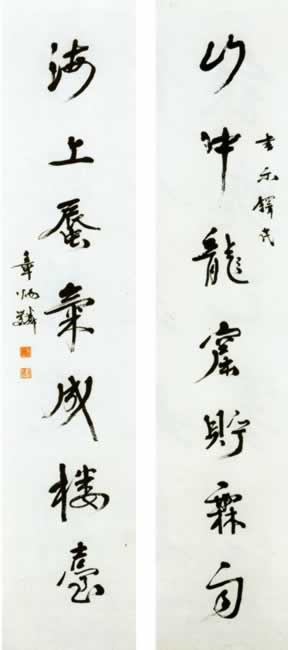 書示鐸民
山中龍窟貯霖雨
海上蜃氣成樓臺
章炳麟